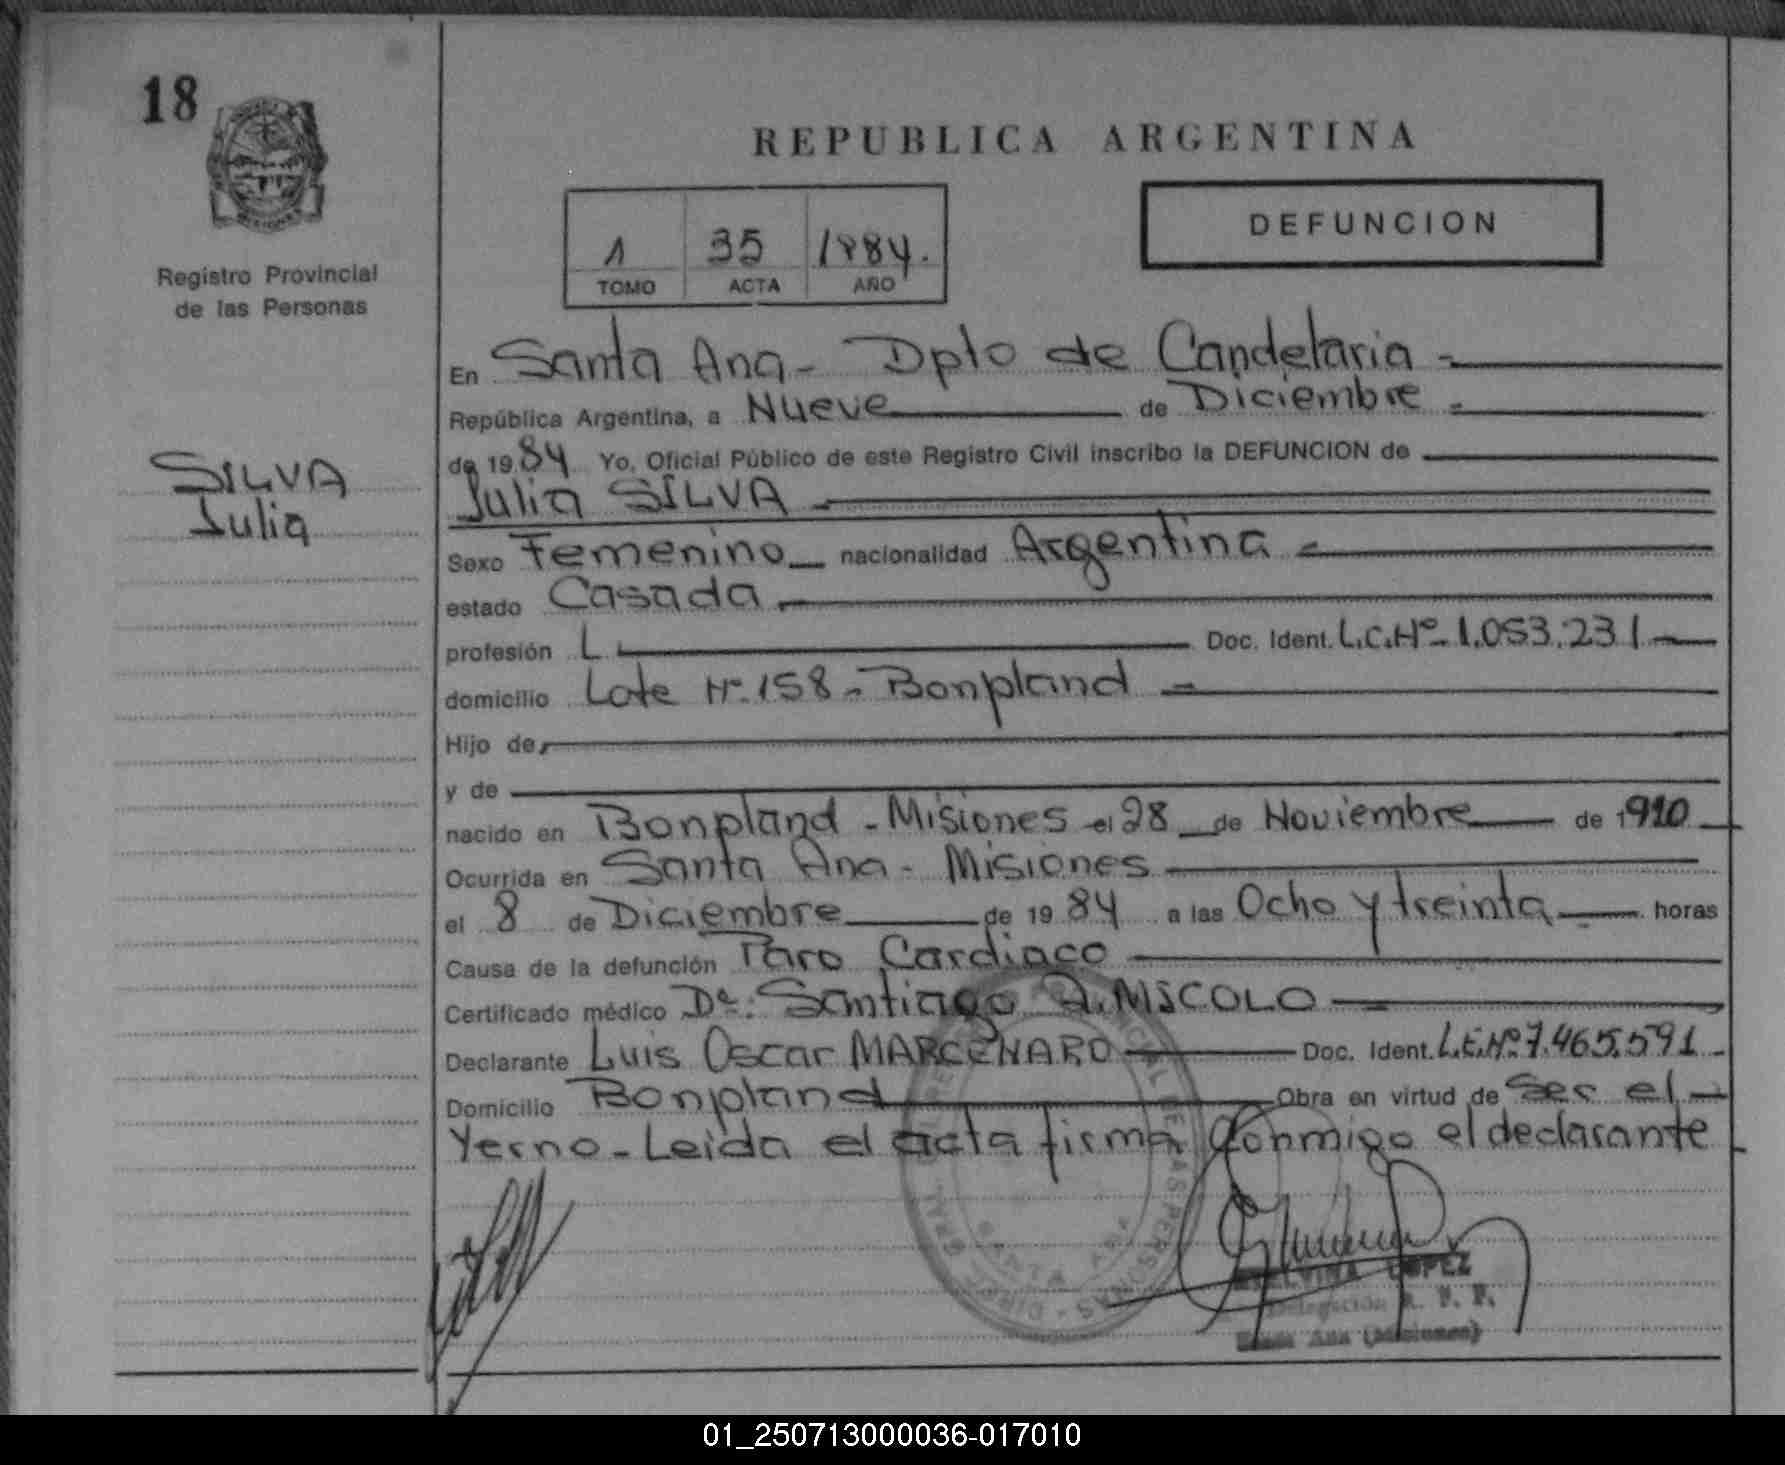 18
REPUBLICA ARGENTINA
DEFUNCION
1 35 1984.
TOMO ACTA AÑO
Registro Provincial
de las Personas
SILVA
Julia
En Santa Ana - Dpto de Candelaria -
República Argentina, a Nueve de Diciembre -
de 1984 Yo, Oficial Público de este Registro Civil inscribo la DEFUNCION de
Julia SILVA -
Sexo Femenino nacionalidad Argentina -
estado Casada -
profesión L. Doc. Ident. L.C.Nº 1.053.231 -
domicilio Lote Nº 158 - Bonpland -
Hijo de
y de
nacido en Bonpland - Misiones el 28 de Noviembre de 1910
Ocurrida en Santa Ana - Misiones
el 8 de Diciembre de 1984 a las Ocho y treinta horas
Causa de la defunción Paro Cardiaco
Certificado médico Dr. Santiago MISCOLO
Declarante Luis Oscar MARCENARO Doc. Ident. L.E.Nº 7.465.591 -
Domicilio Bonpland Obra en virtud de Ser el -
Yerno - Leida el acta firma Conmigo el declarante
SANTA ANA
LOPEZ
Delegación R. P. P.
Santa Ana (Misiones)
01_250713000036-017010